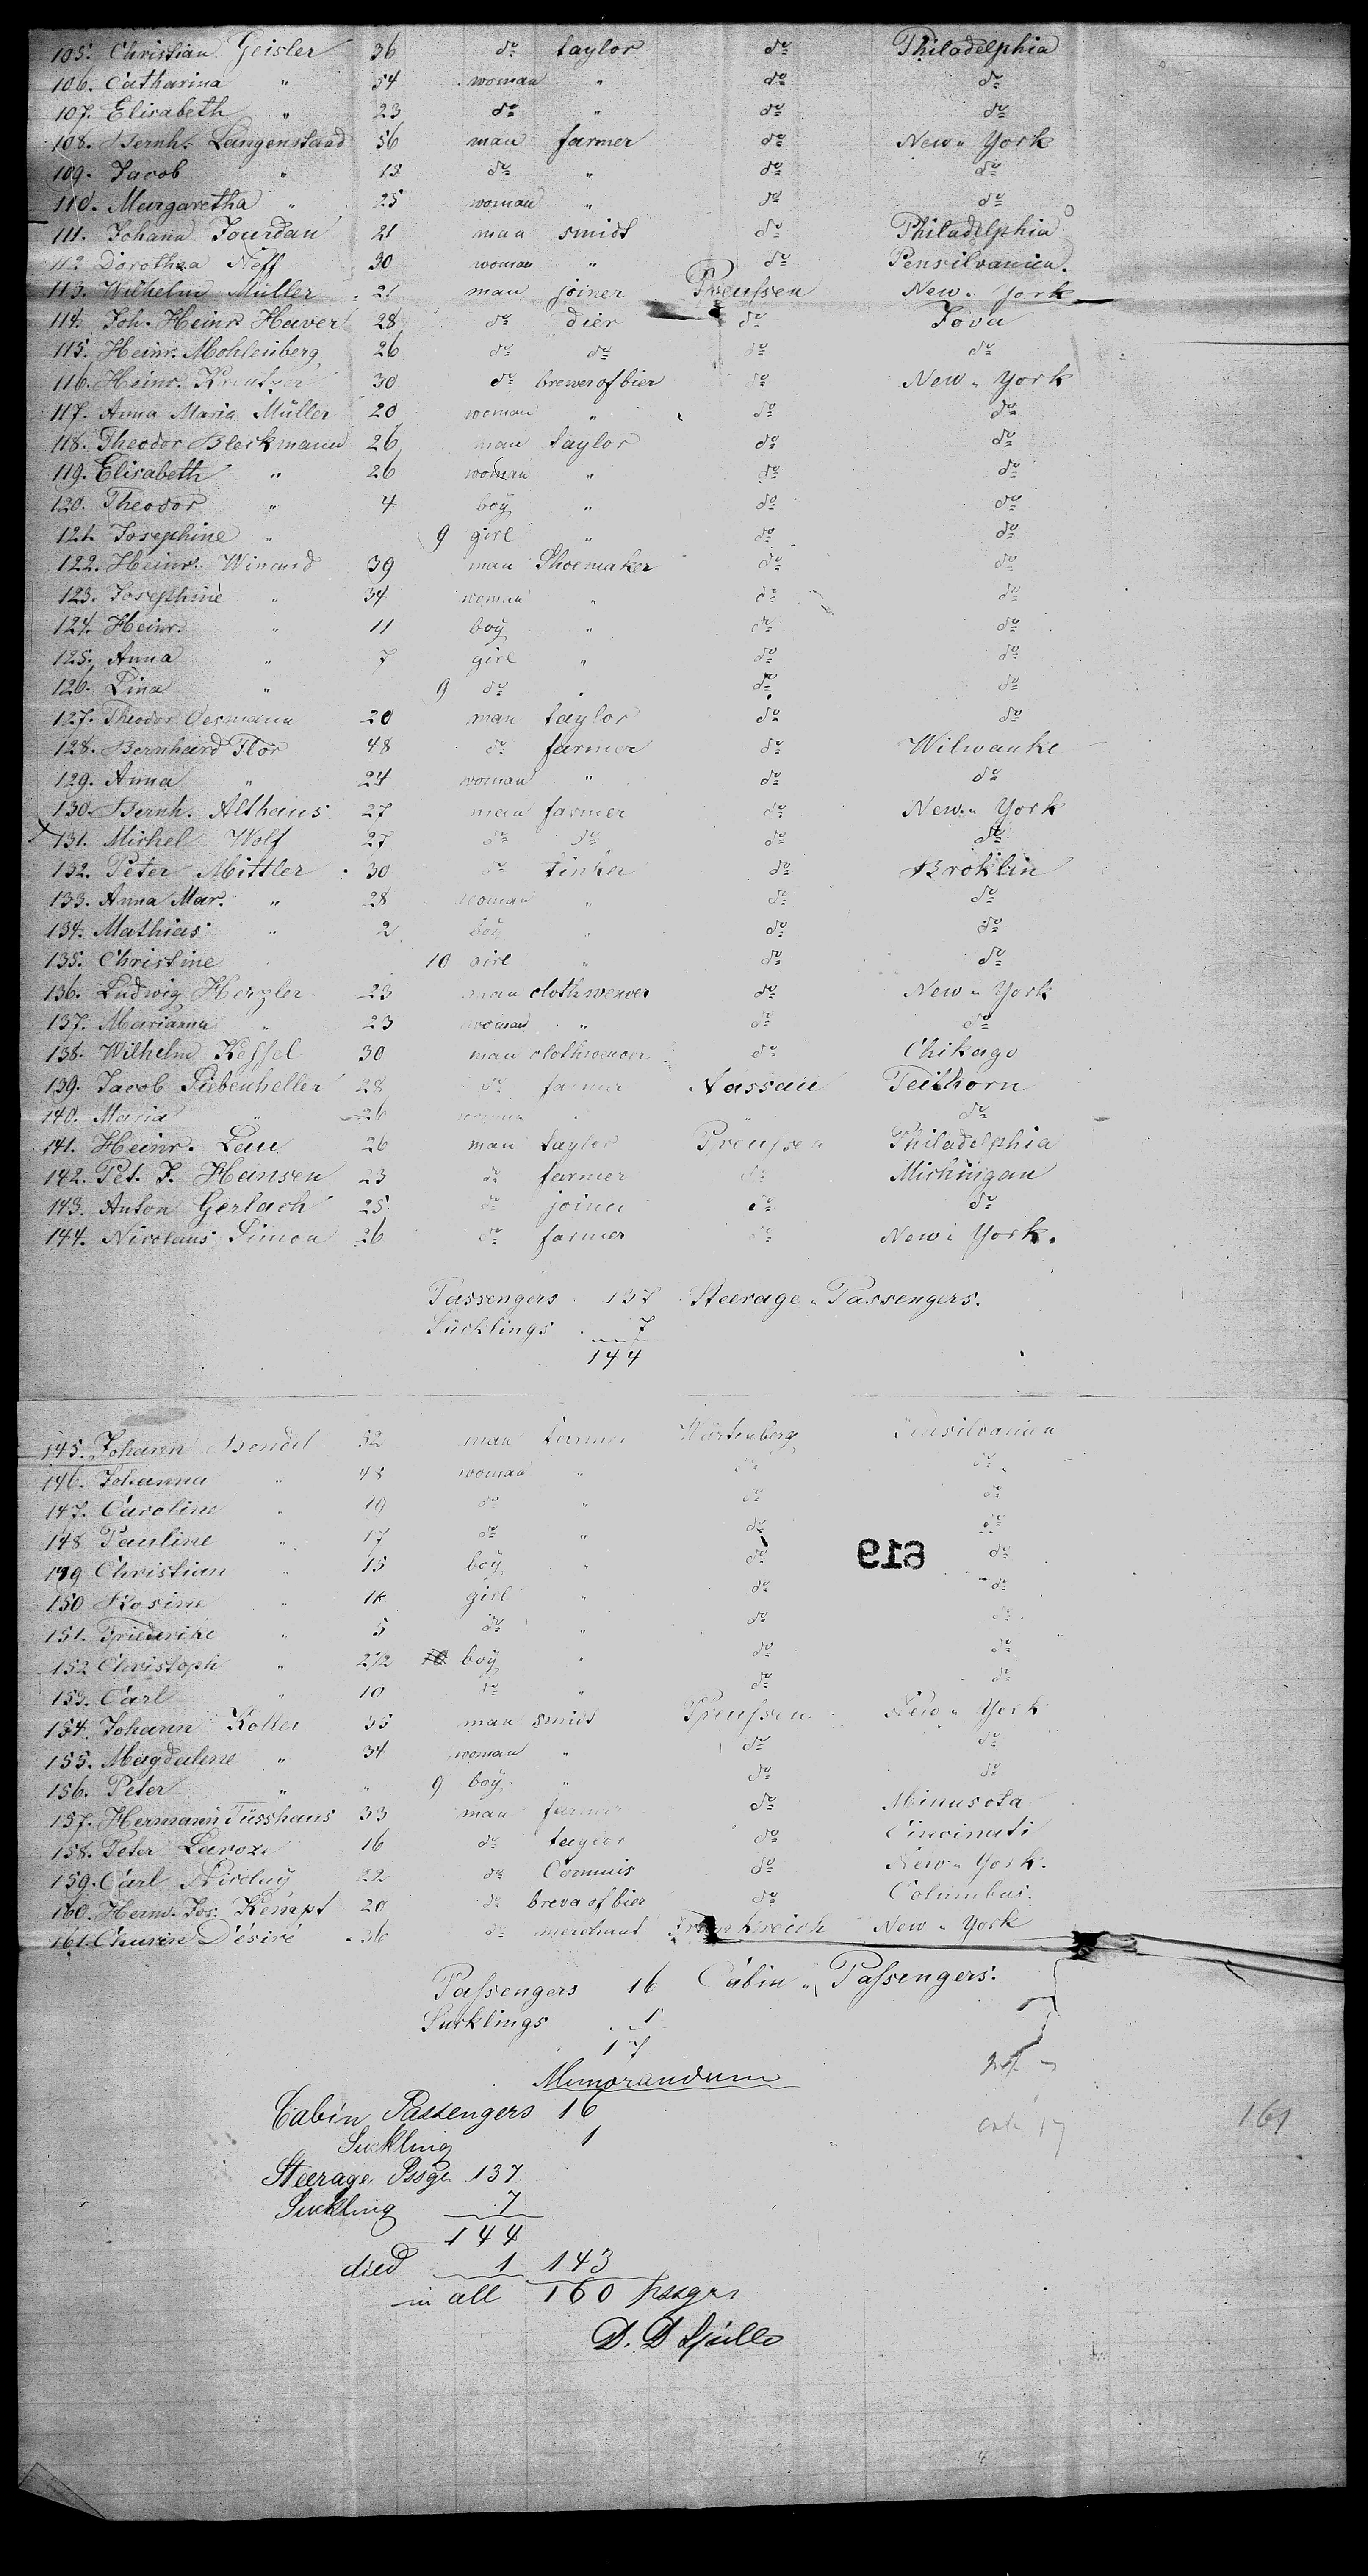 105. Christian Geisler 36 do taylor do Philadelphia
106. Catharina " 54 woman " do do
107. Elisabeth " 23 do " do do
108. Bernh. Langenstand 56 man farmer do New York
109. Jacob " 18 do " do do
110. Margaretha " 25 woman " do do
111. Johann Jourdan 21 man smidt do Philadelphia
112 Dorothea Neff 30 woman " do Pensilvanien.
113. Wilhelm Müller 21 man joiner Preussen New York
114. Joh. Heinr. Haver 28 do dier do Iova
115. Heinr. Mohlenberg 26 do do do do
116. Heinr. Kreutzer 30 do brewer of bier do New York
117. Anna Maria Müller 20 woman " do do
118. Theodor Bleckmann 26 man taylor do do
119. Elisabeth " 26 woman " do do
120. Theodor " 4 boy " do do
121. Josephine " 9 girl " do do
122. Heinr. Winand 39 man Shoemaker do do
123. Josephine " 34 woman " do do
124. Heinr. " 11 boy " do do
125. Anna " 7 girl " do do
126. Lina " 9 do " do do
127. Theodor Oesmann 20 man taylor do do
128. Bernhard Flor 48 do farmer do Wilwauke
129. Anna " 24 woman " do do
130. Bernh. Althaus 27 man farmer do New York
131. Michel Wolf 27 do do do do
132. Peter Mittler 30 do tinker do Broklin
133. Anna Mar. " 28 woman " do do
134. Mathias " 2 boy " do do
135. Christine 10 girl " do do
136. Ludwig Herzler 23 man clothwewer do New York
137. Marianna " 23 woman " do do
138. Wilhelm Kessel 30 man clothwewer do Chikago
139. Jacob Siebenheller 28 do farmer Nassau Teithorn
140. Maria " 26 woman " do
141. Heinr. Lau 26 man taylor Preussen Philadelphia
142. Pet. J. Hansen 23 do farmer do Michingan
143. Anton Gerlach 25 do joiner do do
144. Nicolaus Simon 26 do farmer do New York.
Passengers 137 Steerage Passengers.
Sücklings 7
144
145. Johann Bendel 52 man farmer Würtenberg Pensilvanien
146. Johanna " 48 woman " do do
147. Caroline " 19 do " do do
148 Pauline " 17 do " do do
149 Christian " 15 boy " do do
619
150 Rosine " girl " do do
151. Friederike " 5 do " do do
152 Christoph " 2 1/2 boy " do do
153. Carl " 10 do " do do
154. Johann Kotter 35 man smidt Preussen New York
155. Magdalene " 34 woman " do do
156. Peter " " 9 boy " do do
157. Hermann Tüsshaus 33 man farmer do Minusota
158. Peter Laroze 16 do taylor do Cincinati
159. Carl Nicolay 22 do Commis do New York.
160. Herm. Jos. Kempt 20 do brewa of bier do Columbus.
161. Churin Désiré 36 do merchant Frankreich New York
Passengers 16 Cabin Passengers.
Sücklings 1
17
Memorandum
Cabin Passengers 16
Suckling 1
161
Steerage Pssgr 137
Suckling 7
144
died 1 143
in all 160 pssgrs